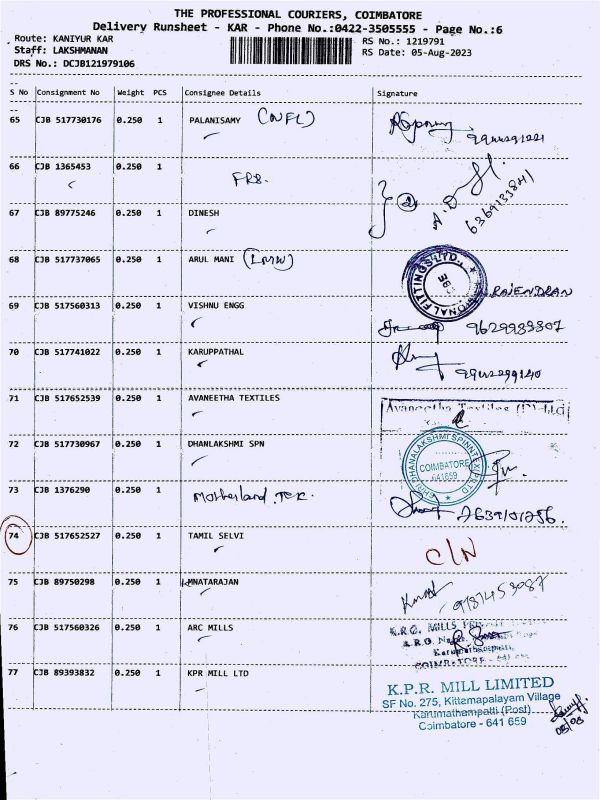 THE PROFESSIONAL COURIERS, COIMBATORE
Delivery Runsheet - KAR - Phone No.:0422-3505555 - Page No.:6
Route: KANIYUR KAR
RS No.: 1219791
Staff: LAKSHMANAN
RS Date: 05-Aug-2023
DRS No.: DCJB121979106
S No Consignment No Weight PCS Consignee Details Signature
65 CJB 517730176 0.250 1 PALANISAMY (NFL)
66 CJB 1365453 0.250 1
6369133841
67 CJB 89775246 0.250 1 DINESH
68 CJB 517737065 0.250 1 ARUL MANI (LMW)
RAJENDRAN
69 CJB 517560313 0.250 1 VISHNU ENGG
70 CJB 517741022 0.250 1 KARUPPATHAL
71 CJB 517652539 0.250 1 AVANEETHA TEXTILES Avaneetha Textiles (P) Ltd
72 CJB 517730967 0.250 1 DHANLAKSHMI SPN
COIMBATORE
641659
73 CJB 1376290 0.250 1 Motherland Tex.
74 CJB 517652527 0.250 1 TAMIL SELVI C/N
75 CJB 89750298 0.250 1 NATARAJAN
76 CJB 517560326 0.250 1 ARC MILLS
77 CJB 89393832 0.250 1 KPR MILL LTD
K.P.R. MILL LIMITED
SF No. 275, Kittemapalayam Village
Karumathampatti (Post)
Coimbatore - 641 659